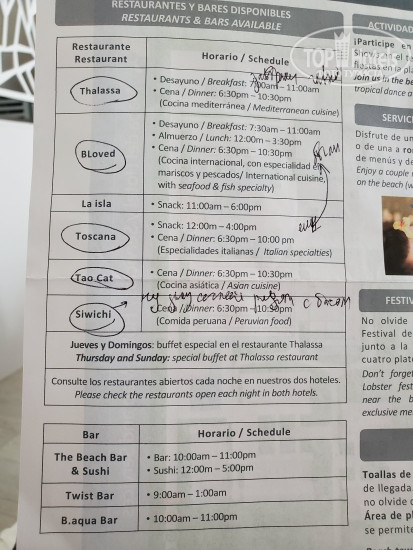 RESTAURANTES Y BARES DISPONIBLES
RESTAURANTS & BARS AVAILABLE
Restaurante
Restaurant
Horario / Schedule
Thalassa
• Desayuno / Breakfast: 7:00am – 11:00am
• Cena / Dinner: 6:30pm – 10:30pm
(Cocina mediterránea / Mediterranean cuisine)
BLoved
• Desayuno / Breakfast: 7:30am – 11:00am
• Almuerzo / Lunch: 12:00m – 3:30pm
• Cena / Dinner: 6:30pm – 10:30pm
(Cocina internacional, con especialidad en
mariscos y pescados/ International cuisine,
with seafood & fish specialty)
La isla
• Snack: 11:00am – 6:00pm
Toscana
• Snack: 12:00m – 4:00pm
• Cena / Dinner: 6:30pm – 10:00 pm
(Especialidades italianas / Italian specialties)
Tao Cat
• Cena / Dinner: 6:30pm – 10:30pm
(Cocina asiática / Asian cuisine)
Siwichi
Cena / Dinner: 6:30pm – 10:30pm
(Comida peruana / Peruvian food)
Jueves y Domingos: buffet especial en el restaurante Thalassa
Thursday and Sunday: special buffet at Thalassa restaurant
Consulte los restaurantes abiertos cada noche en nuestros dos hoteles.
Please check the restaurants open each night in both hotels.
Bar
Horario / Schedule
The Beach Bar
& Sushi
• Bar: 10:00am – 11:00pm
• Sushi: 12:00m – 5:00pm
Twist Bar
• 9:00am – 1:00am
B.aqua Bar
• 10:00am – 11:00pm
ACTIVIDAD
¡Participe en
Join us in the be
tropical dance a
SERVIC
Disfrute de un
o de una a
de menús y de
Enjoy a couple
on the beach (w
FESTIV
No olvide
Festival de
junto a la
cuatro plat
Don't forget
Lobster fest
near the b
exclusive me
Toallas de
de llegada.
no olvide
Área de p
se permite